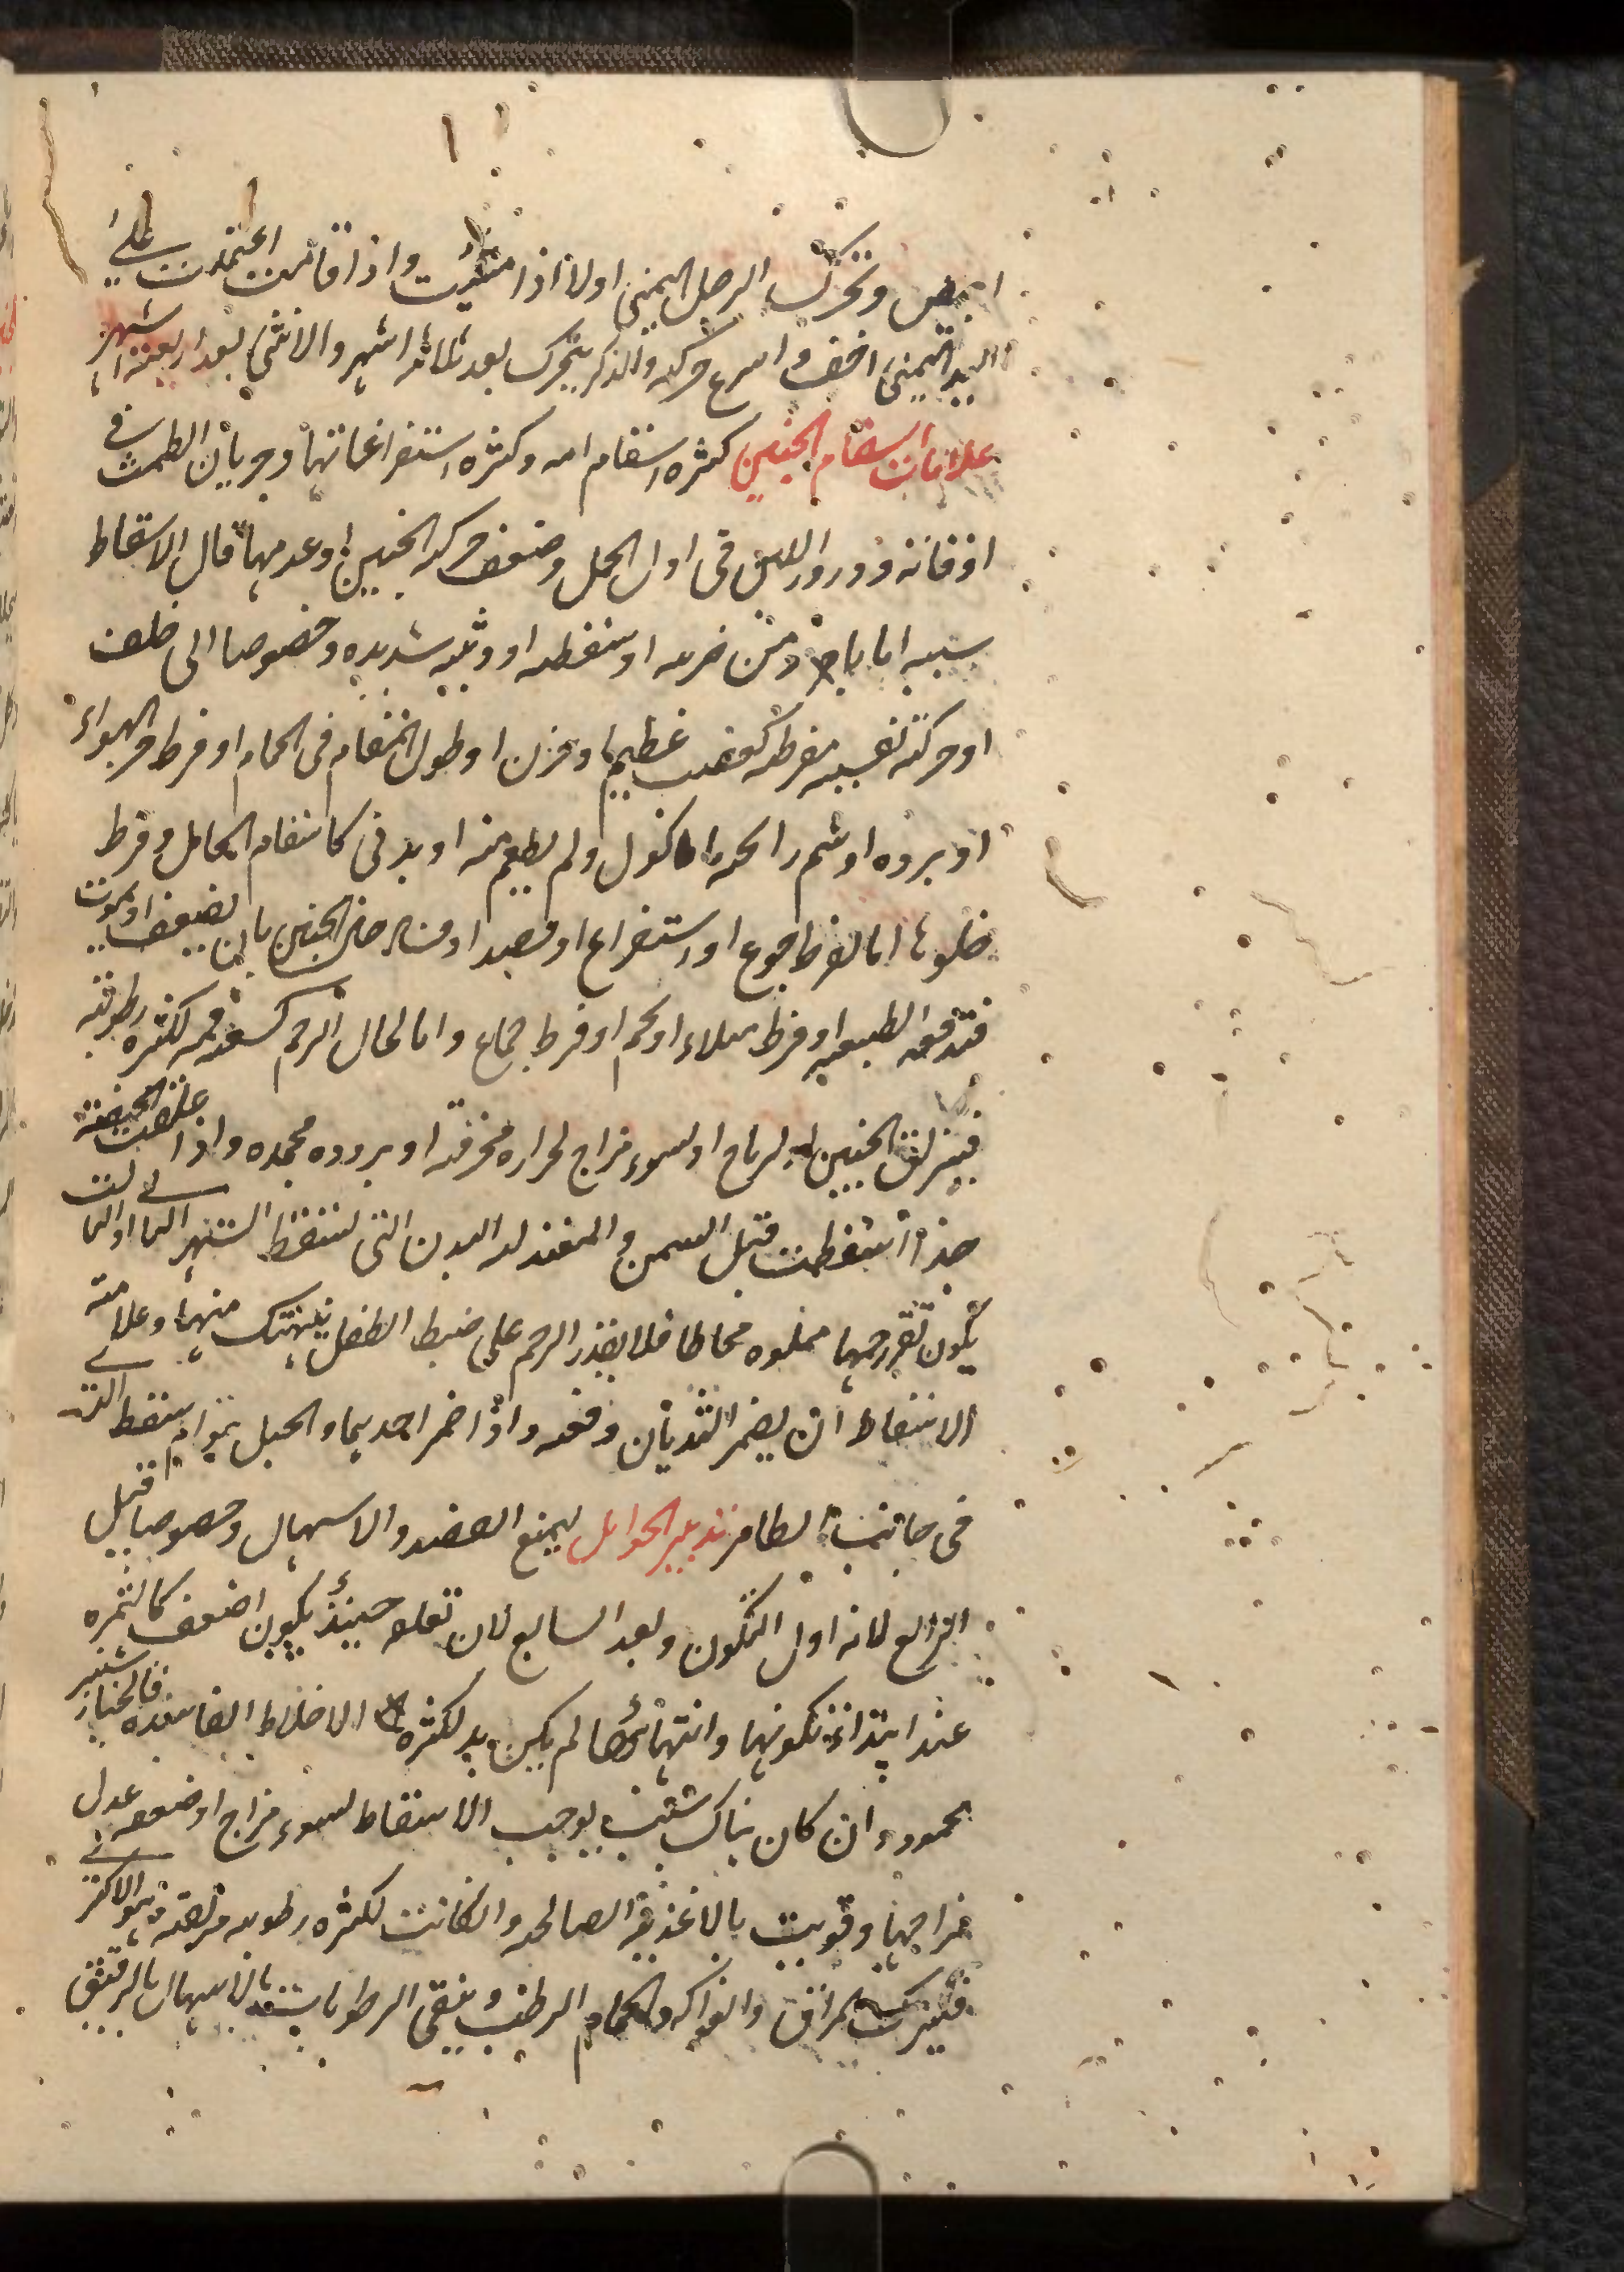 ابيض وتحرك الرجل اليمنى اولا اذا مشيت واذا قامت اعتمدت على
اليد اليمنى اخف واسرع حركه والذكر يتحرك بعد ثلاثه اشهر والانثى بعد اربعة اشهر
علامات اسقام الجنين كثره اسقام امه وكثره استفراغاتها وجريان الطمث في
اوقاته ودرور اللبن فى اول الحمل وضعف حركه الجنين او عدمها قال الاسقاط
سببه اما باد من ضربه او سقطه او وثبه شديده وخصوصا الى خلف
او حركة نفسيه مفرطه كغضب عظيم او حزن او طول المقام فى الحمام او فرط حر الهواء
او برده او شم رائحه ماكول ولم يطعم منه او بدنى كاسقام الحامل وفرط
خلوها اما لفرط جوع او استفراغ او فصد او من مرض الجنين بان يضعف او يموت
فتدفعه الطبيعه او فرط امتلاء او تخم او فرط جماع واما لحال الرحم كسعة فمه لكثره رطوبته
فينزلق الجنين او لرياح او لسوء مزاج لحراره محرقه او بروده مجمده واذا علقت النحيفة
جدا اسقطت قبل السمن والمعتدله البدن التى تسقط الشهر الثانى او الثالث
يكون نقر رحمها مملوه مخاطا فلا يقدر الرحم على ضبط الطفل فينهتك منها وعلامته
الاسقاط ان يضمر الثديان دفعه واذا ضمر احديهما والحبل بتوام سقط الذى
فى جانب الضامر تدبير الحوامل ليمنع الفصد والاسهال وخصوصا قبل
الرابع لانه اول التكون وبعد السابع لان تعلقه حينئذ يكون اضعف كالثمره
عند ابتداء تكونها وانتهائها فان لم يكن بد لكثره الاخلاط الفاسده فالخيار شنبر
محمود وان كان هناك سبب يوجب الاسقاط لسوء مزاج او ضعف عدل
مزاجها وقويت بالاغذية الصالحه وان كانت لكثره رطوبه مزلقه وهو الاكثرى
فليترك المرق والفواكه والحمام الرطب وينقى الرطوبات بالاسهال بالرفق